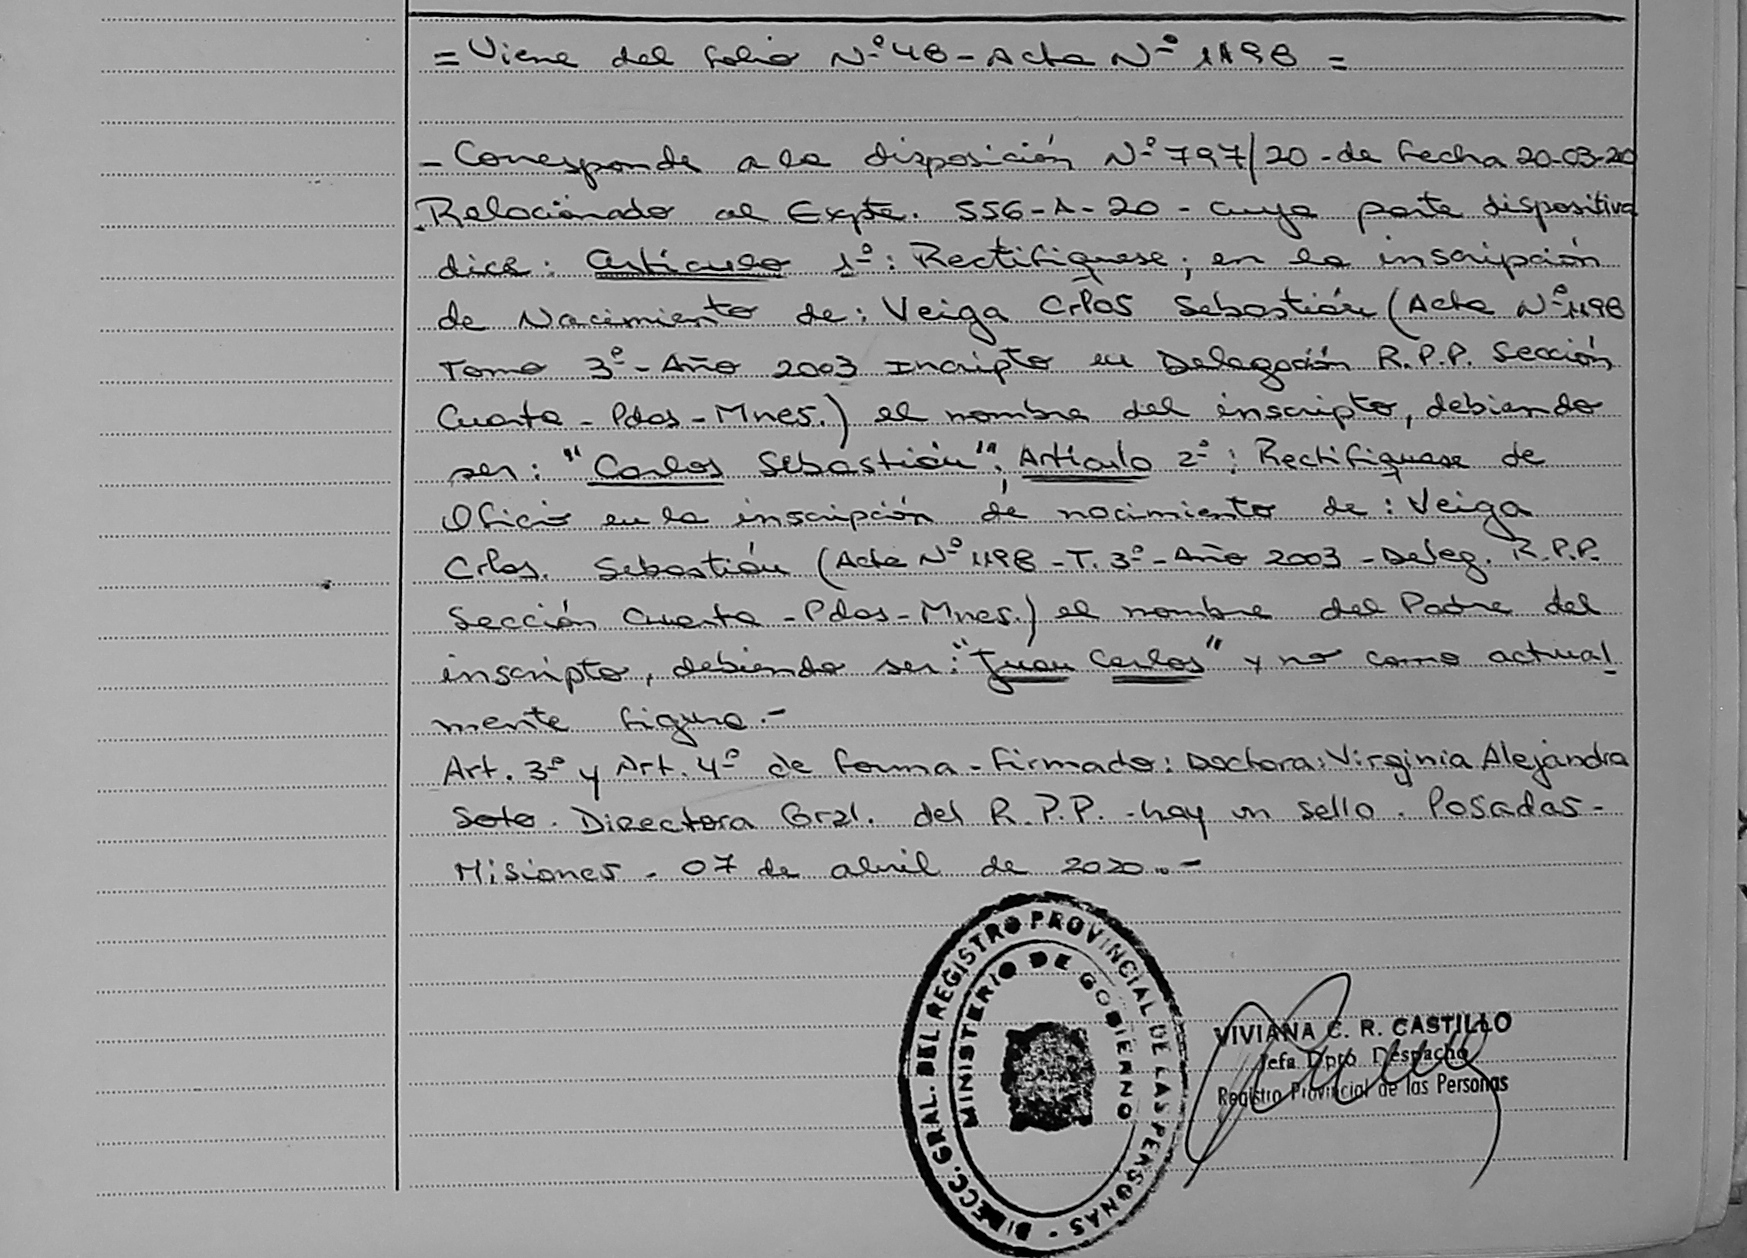 = Viene del folio Nº 48 - Acta Nº 1198 =
- Corresponde a la disposición Nº 797/20 - de fecha 20-03-20
Relacionado al Expte. 556-A-20 - cuya parte dispositiva
dice: Artículo 1º: Rectifíquese, en la inscripción
de Nacimiento de: Veiga Crlos Sebastián (Acta Nº 1198
Tomo 3º - Año 2003 Incripto en Delegación R.P.P. Sección
Cuarta - Pdas - Mnes.) el nombre del inscripto, debiendo
ser: "Carlos Sebastián". Artículo 2º: Rectifíquese de
Oficio en la inscripción de nacimiento de: Veiga
Crlos. Sebastián (Acta Nº 1198 - T. 3º - Año 2003 - Deleg. R.P.P.
Sección Cuarta - Pdas - Mnes.) el nombre del Padre del
inscripto, debiendo ser: "Juan Carlos" y no como actual
mente figura.-
Art. 3º y Art. 4º de forma - Firmado: Doctora: Virginia Alejandra
Soto. Directora Gral. del R.P.P. - hay un sello. Posadas -
Misiones - 07 de abril de 2020..-
DIRECC. GRAL. DEL REGISTRO PROVINCIAL DE LAS PERSONAS -
MINISTERIO DE GOBIERNO
VIVIANA C. R. CASTILLO
Jefa Dpto Despacho
Registro Provincial de las Personas